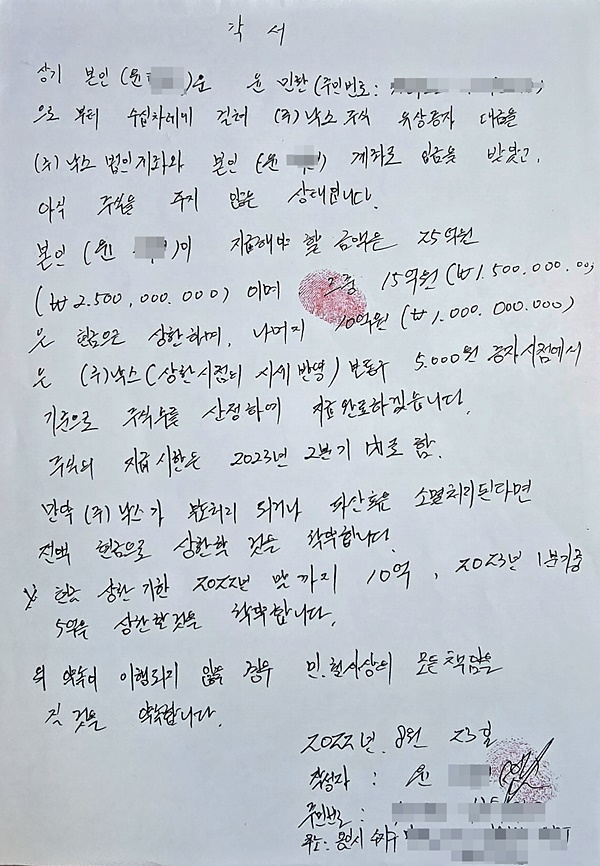 각 서
상기 본인 (윤 )은 윤 민란 (주민번호 : )
으로 부터 수십차례에 걸쳐 (주) 낙스 주식 유상증자 대금을
(주) 낙스 법인계좌와 본인 (윤 ) 계좌로 입금을 받았고,
아직 주식을 주지 않은 상태입니다.
본인 (윤 )이 지급해야 할 금액은 25억원
(₩ 2.500,000.000) 이며 그중 15억원 (₩1.500.000.00
은 현금으로 상환하며, 나머지 10억원 (₩1.000.000.000)
은 (주)낙스 (상환시점의 시세 반영) 보통주 5.000원 증자시점에서
기준으로 주식수를 산정하여 지급완료하겠습니다.
주식의 지급 시한은 2023년 2분기 내로 함.
만약 (주) 낙스가 부도처리 되거나 파산 혹은 소멸처리된다면
전액 현금으로 상환할 것을 약속합니다.
현금 상환 기한 2022년 말까지 10억, 2023년 1분기중
5억을 상환할것을 약속합니다.
위 약속이 이행되지 않을 경우 민.형사상의 모든 책임을
질 것을 약속합니다.
2022년. 8월 23일
작성자 : 윤
주민번호 :
주소 : 용인시 수지구